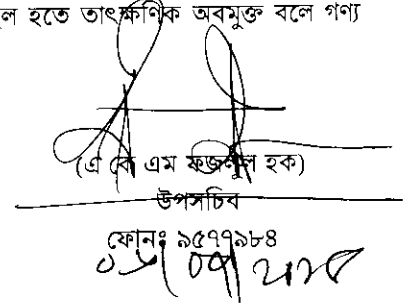 হতে তাৎক্ষণিক অবমুক্ত বলে গণ্য
(এ কে এম ফজলুল হক)
উপসচিব
ফোনঃ ৯৫৭৭৯৮৪